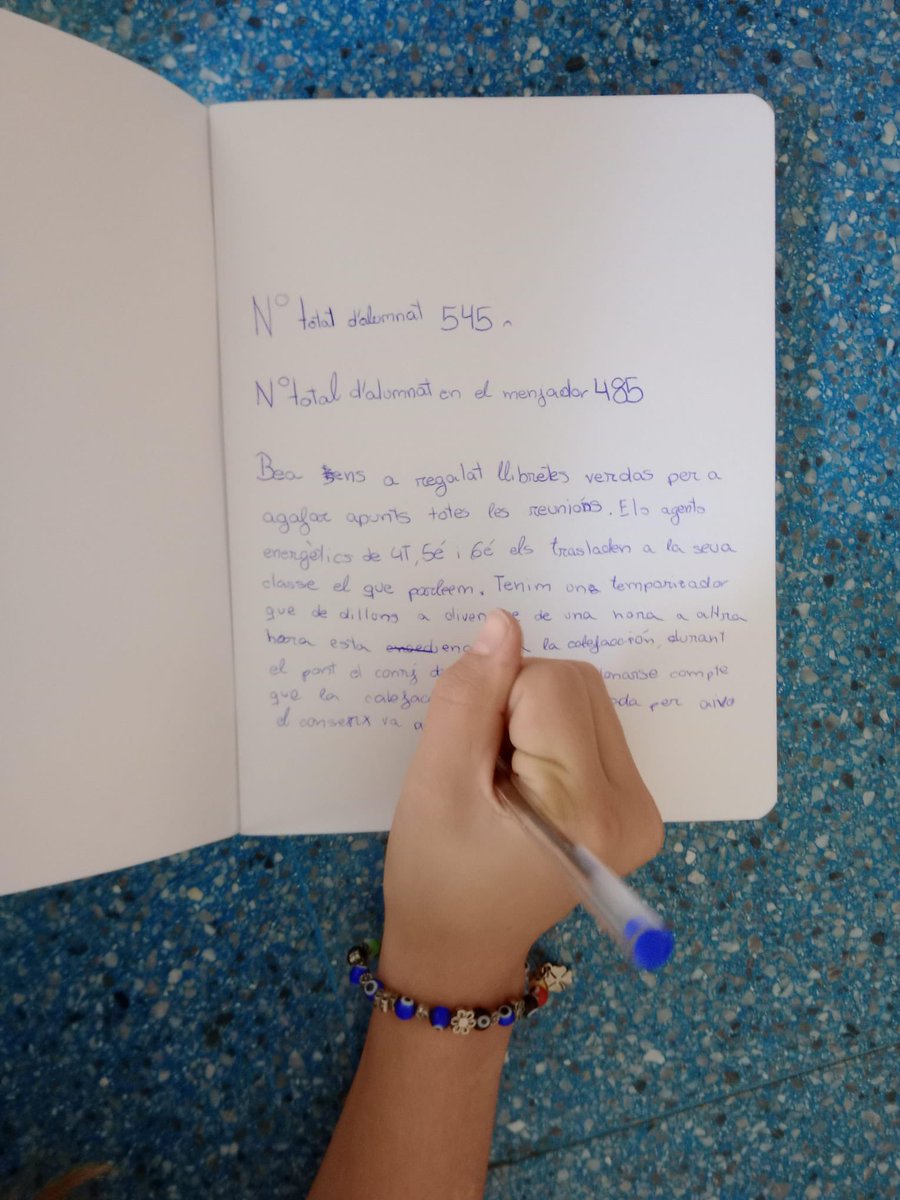 Nº total d'alumnat 545
Nº total d'alumnat en el menjador 485
Bea ens a regalat llibretes verdas per a
agafar apunts totes les reunions. Els agents
energètics de 4T, 5é i 6é els trasladen a la seua
classe el que parleem. Tenim una temporizador
que de dillons a diven e de una hora a altra
hora esta enc a la calefacción, durant
el pont el conserj d donarse compte
que la calefac da per aixo
el conserx va a